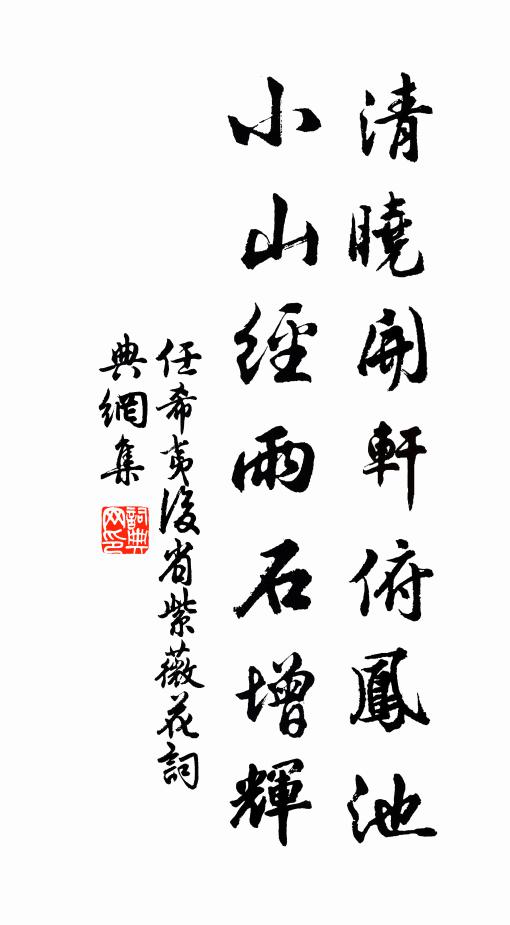 清曉開軒俯鳳池
小山經雨石增輝
任希夷後省紫薇花詞
典網集
詞典
网印